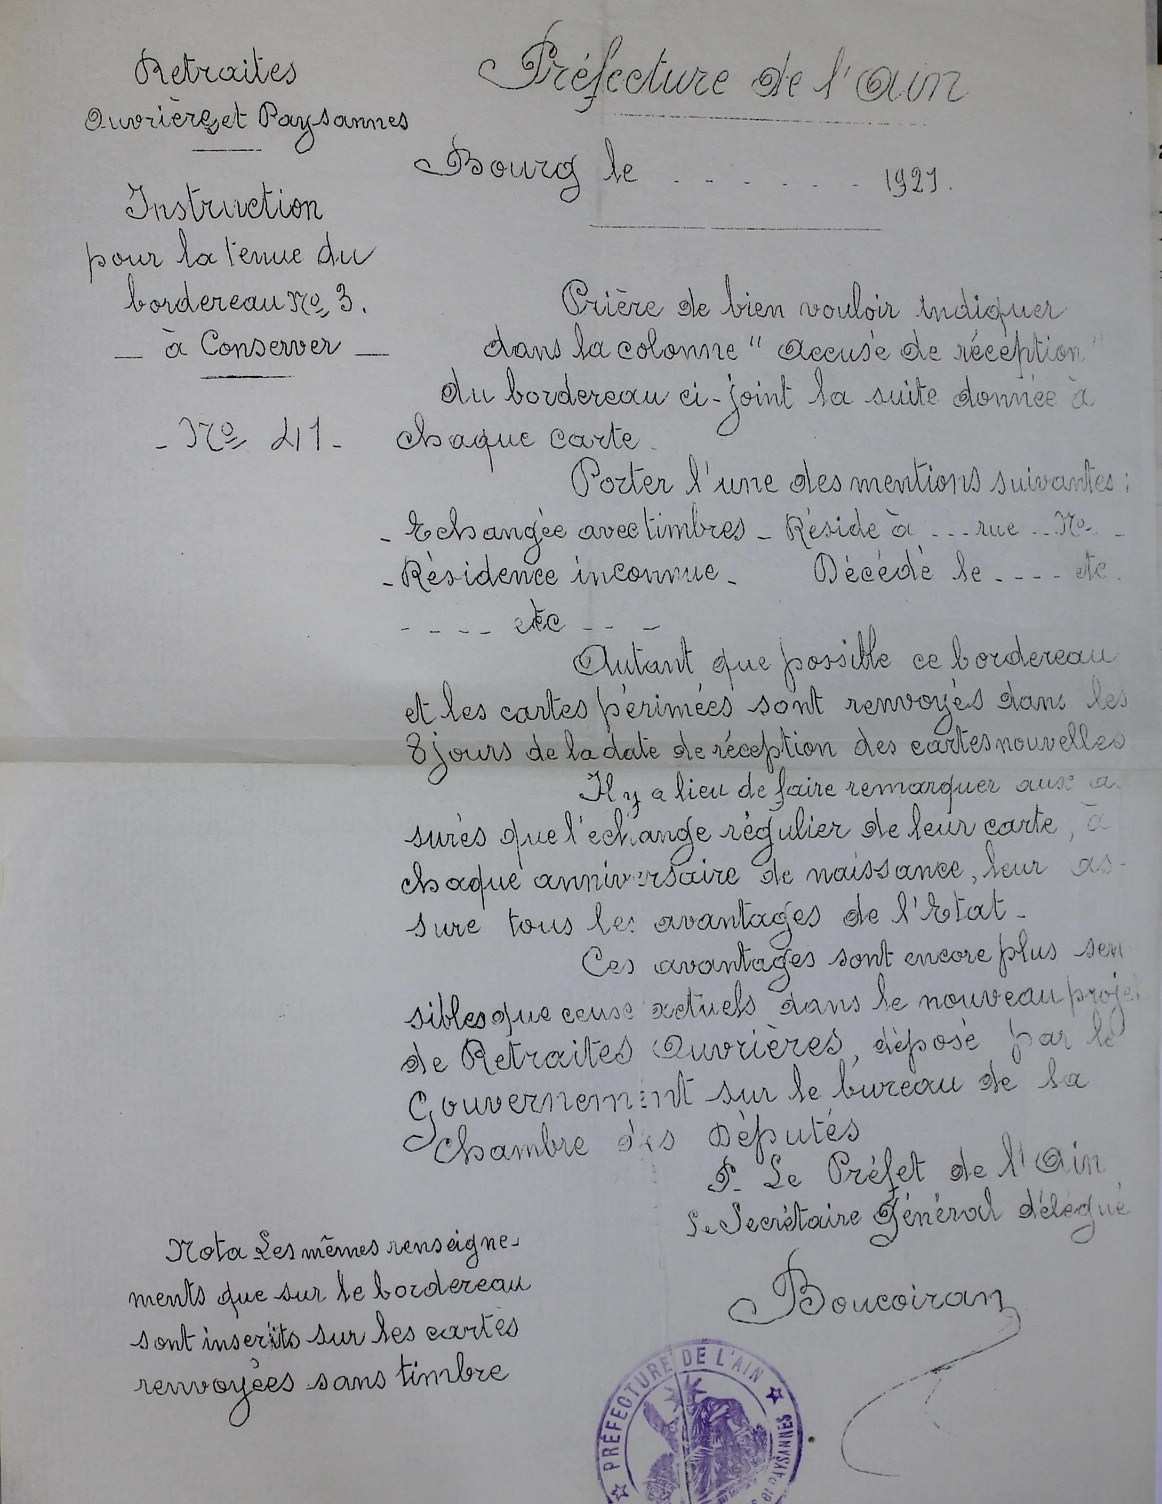 Retraites
Ouvrières et Paysannes
Instruction
pour la tenue du
bordereau No 3.
_ à Conserver _
- No 41 -
Préfecture de l'Ain
Bourg le . - - . - - - 1921.
Prière de bien vouloir indiquer
dans la colonne " accusé de réception "
du bordereau ci-joint la suite donnée à
chaque carte.
Porter l'une des mentions suivantes :
- Echangée avec timbres - Réside à ... rue .. No -
- Résidence inconnue - Décédé le .... etc.
- - - - etc - - -
Autant que possible ce bordereau
et les cartes périmées sont renvoyés dans les
8 jours de la date de réception des cartes nouvelles
Il y a lieu de faire remarquer aux as
surés que l'échange régulier de leur carte, à
chaque anniversaire de naissance, leur as-
sure tous les avantages de l'Etat -
Ces avantages sont encore plus sen
sibles que ceux actuels dans le nouveau projet
de Retraites Ouvrières, déposé par le
Gouvernement sur le bureau de la
Chambre des Députés
P. Le Préfet de l'Ain
Le Secrétaire Général délégué
Boucoiran
Nota Les mêmes renseigne-
ments que sur le bordereau
sont inscrits sur les cartes
renvoyées sans timbre
PRÉFECTURE DE L'AIN
et PAYSANNES